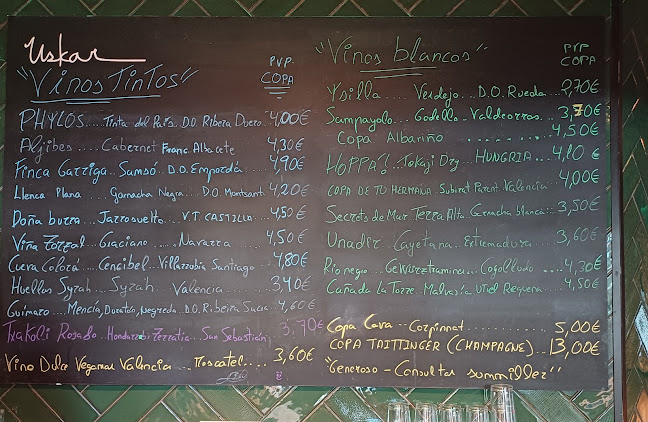 Uskar
"Vinos Tintos"
PVP.
COPA
PHYLOS.... Tinta del País. D.O. Ribera Duero. 4,00€
Aljibes.... Cabernet Franc. Albacete 4,30€
Finca Garriga... Samsó.. D.O. Empordà 4,90€
Llenca Plana ... Garnacha Negra.. D.O. Montsant. 4,20€
Doña burra... Jarrosuelto.. V.T. CASTILLA. 4,50€
Viña Zorzal... Graciano .... Navarra 4,50€
Cueva Colorá.... Cencibel.. Villarrubia Santiago 4,80€
Huellas Syrah.... Syrah. Valencia 3,40€
Guimaro ... Mencía, D.O. Ribeira Sacra. 4,60€
Txakoli Rosado. Hondarrabi Zerratia... San Sebastián 3,70€
Vino Dulce Vegamar Valencia ... Moscatel... 3,60€
"Vinos blancos"
PVP
COPA
Ysilla ..... Verdejo.. D.O. Rueda.. 2,70€
Sampayolo.. Godello.. Valdeorras. 3,70€
Copa Albariño 4,50€
HOPPA!. Tokaji Dry... HUNGRIA.. 4,10€
COPA DE TU HERMANA Subirat Parent. Valencia 4,00€
Secrets de Mar Terra Alta Garnacha blanca.. 3,50€
Unadir.. Cayetana.. Extremadura.. 3,60€
Rio negro.. Gewürztraminer.. Cogolludo... 4,30€
Cañada La Torre. Malvasía Utiel Requena 4,50€
Copa Cava.. Corpinnat.......... 5,00€
COPA TAITTINGER (CHAMPAGNE)... 13,00€
"Generoso - Consultar summiller"